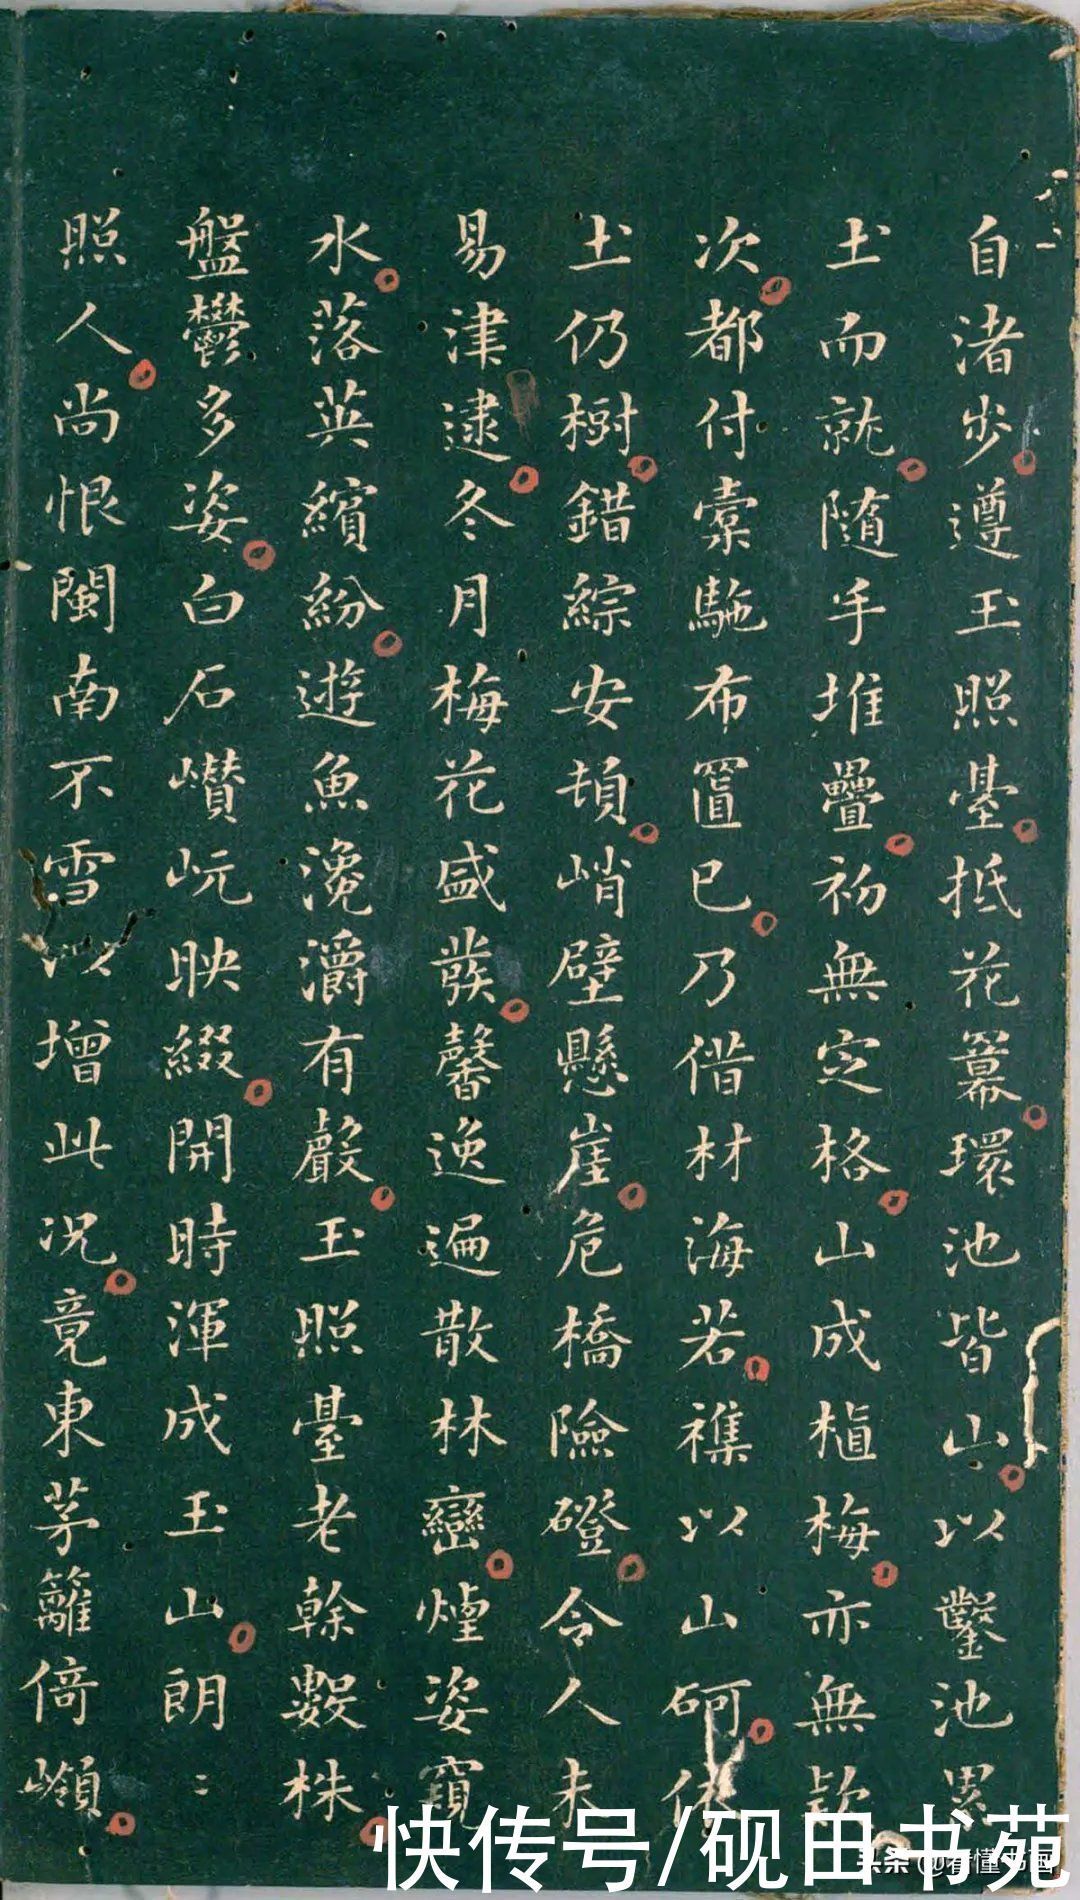 自渚步遵玉照臺抵花冪環池皆山以鑿池累
土而就隨手堆疊初無定格山成植梅亦無欵
次都付橐駞布置已乃借材海若襍以山砢依
土仍樹錯綜安頓峭壁懸崖危橋險磴令人未
易津逮冬月梅花盛發馨逸遍散林巒煙姿窺
水落英繽紛遊魚瀺灂有聲玉照臺老榦數株
盤鬱多姿白石巑岏映綴開時渾成玉山朗〻
照人尚恨閩南不雪以增此况竟東茅籬倚嶺
快传号/砚田书苑
头条 @看懂书画